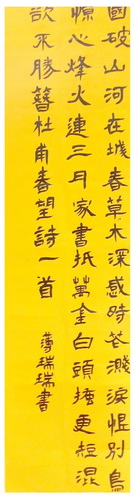 國破山河在城春草木深感時花濺淚恨別鳥
驚心烽火連三月家書抵萬金白頭搔更短渾
欲不勝簪杜甫春望詩一首
薄瑞瑞書